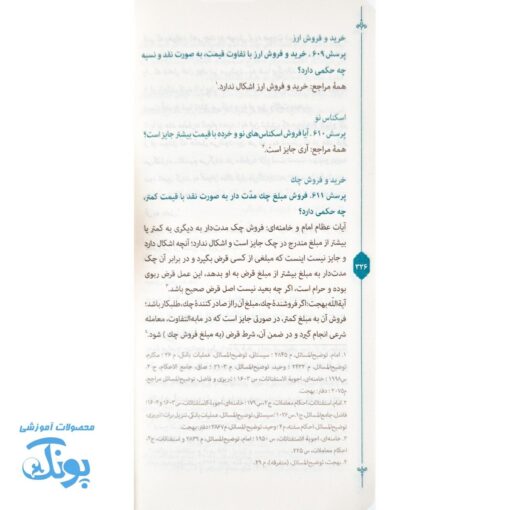 خرید و فروش ارز
پرسش ۶۰۹ . خرید و فروش ارز با تفاوت قیمت، به صورت نقد و نسیه
چه حکمی دارد؟
همهٔ مراجع: خرید و فروش ارز اشکال ندارد.۱
اسکناس نو
پرسش ۶۱۰ . آیا فروش اسکناس‌های نو و خرده با قیمت بیشتر جایز است؟
همهٔ مراجع: آری جایز است.۲
خرید و فروش چک
پرسش ۶۱۱. فروش مبلغ چک مدّت دار به صورت نقد با قیمت کمتر،
چه حکمی دارد؟
آیات عظام امام و خامنه‌ای: فروش چک مدت‌دار به دیگری به کمتر یا
بیشتر از مبلغ مندرج در چک جایز است و اشکال ندارد؛ آنچه اشکال دارد
و جایز نیست اینست که مبلغی از کسی قرض بگیرد و در برابر آن چک
مدت‌دار به مبلغ بیشتر از مبلغ قرض به او بدهد، این عمل قرض ربوی
بوده و حرام است، اگر چه بعید نیست اصل قرض صحیح باشد.۳
آیة‌الله بهجت: اگر فروشندهٔ چک، مبلغ آن را از صادر کنندهٔ چک، طلبکار باشد؛
فروش آن به مبلغ کمتر، در صورتی جایز است که در مابه‌التفاوت، معامله
شرعی انجام گیرد و در ضمن آن، شرط قرض (به مبلغ فروش چک ) شود.۴
۳۲۶
۱. امام، توضیح‌المسائل، م ۲۸۴۵ ؛ سیستانی، توضیح‌المسائل، عملیات بانکی، م ۲۶ ؛ مکارم،
توضیح‌المسائل، م ۲۴۲۲ ؛ وحید، توضیح‌المسائل، م ۲۱۰۳ ؛ صافی، جامع الاحکام، ج ۲،
س۱۹۹۸ ؛ خامنه‌ای، اجوبة الاستفتائات، س ۱۶۰۳ ؛ تبریزی و فاضل، توضیح‌المسائل مراجع،
م۲۰۷۵ ؛ دفتر: بهجت.
۳. خامنه‌ای، اجوبة الاستفتائات، س ۱۹۵۰ ؛ امام، توضیح‌المسائل، م ۲۸۳۹ و استفتائات، ج۲،
احکام معاملات، س ۲۲۵.
۴. بهجت، توضیح‌المسائل، (متفرقه)، م ۲۹.
محصولات آموزشی
پونک